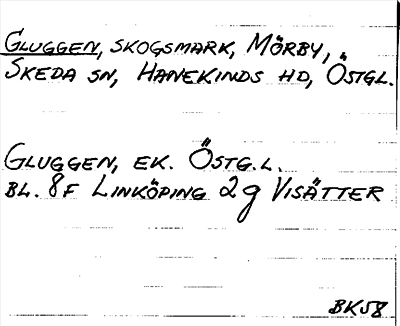 GLUGGEN, SKOGSMARK, MÖRBY,
SKEDA SN, HANEKINDS HD, ÖSTGL.
GLUGGEN, EK. ÖSTG.L.
BL. 8F LINKÖPING 2g VISÄTTER
BK58